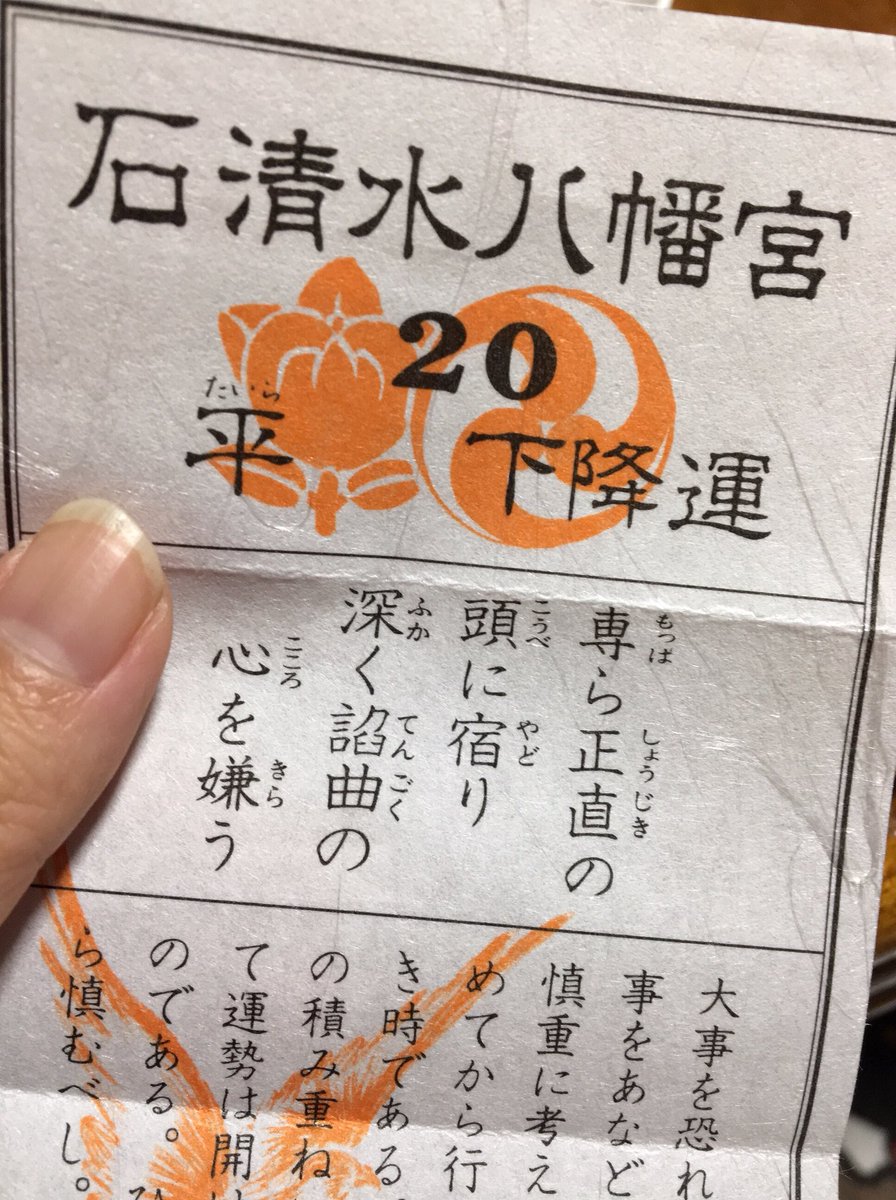 石清水八幡宮
20
たいら
平 下降運
専ら正直の
もっぱ しょうじき
頭に宿り
こうべ やど
深く諂曲の
ふか てんごく
心を嫌う
こころ きら
大事を恐れ
事をあなど
慎重に考え
めてから行
き時である
の積み重ね
て運勢は開け
のである。ひ
ら慎むべし。